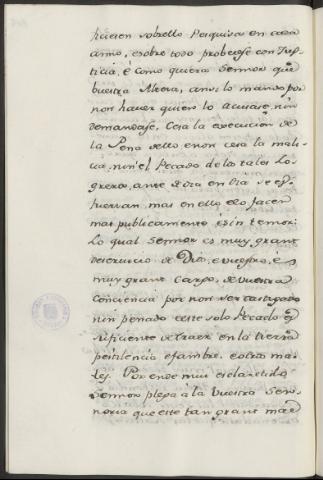 hacien sobrello Pesquisa en cada
anno, e sobre todo probeese con Jus-
ticia, é como quiera Sennor que
buestra Altesa, ansi lo mando por
non haver quien lo acusase, nin
demandase, Cesa la execucion de
la Pena dello e non cesa la mali-
cia, nin el Pecado de los tales Lo-
greros, ante de dia en dia se es-
fuerzan mas en ello e lo facen
mas publicamente é sin temor:
Lo qual Sennor es muy grant
deservicio de Dios, e vuestro, é
muy grant Cargo, de vuestra
conciencia por non ser castigado
nin penado ca este solo Pecado es
suficiente de traer en la tierra
pestilencia e fambre, e otros ma-
les. Por ende mui esclarecido
Sennor plega á la Vuestra Sen-
noria que este tan grant mal